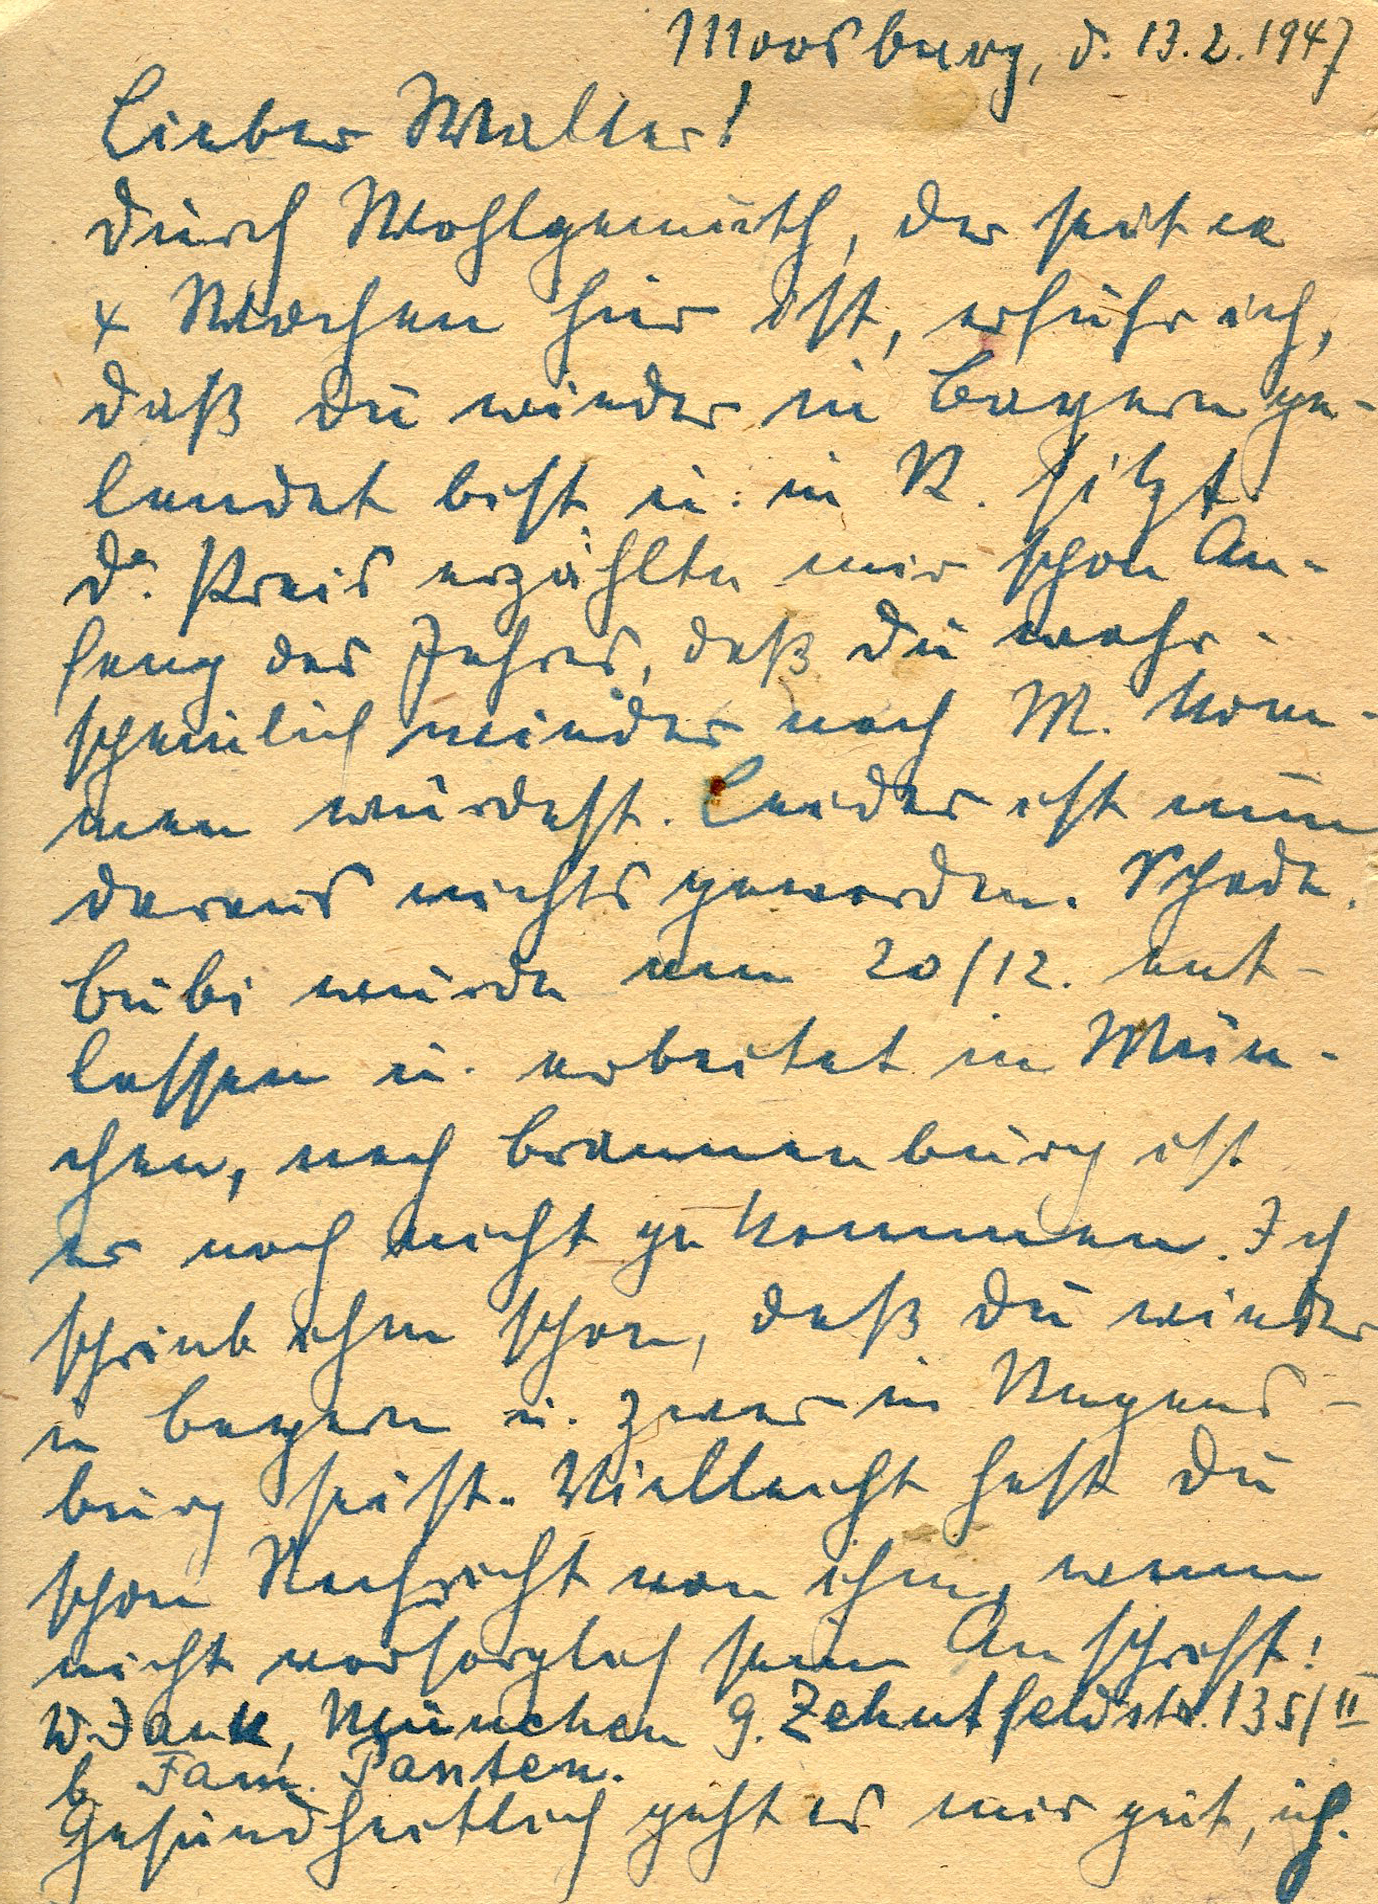 Moosburg, d. 13.2.1947
Lieber Walter!
Durch Wohlgemuth, der seit ca
4 Wochen hier ist, erfuhr ich,
daß Du wieder in Bayern ge-
landet bist u. in R. sitzt.
Dr. Preis erzählte mir schon An-
fang des Jahres, daß Du wahr-
scheinlich wieder nach M. kom-
men würdest. Leider ist nun
daraus nichts geworden. Schade.
Bubi wurde am 20/12. ent-
lassen u. arbeitet in Mün-
chen, nach Brannenburg ist
er noch nicht gekommen. Ich
schrieb ihm schon, daß Du wieder
in Bayern u. zwar in Regens-
burg seist. Vielleicht hast Du
schon Nachricht von ihm, wenn
nicht vorsorglich seine Anschrift:
W. Jank, München 9. Zehntfeldstr. 135/II
b. Fam. Panten.
Gesundheitlich geht es mir gut, ich